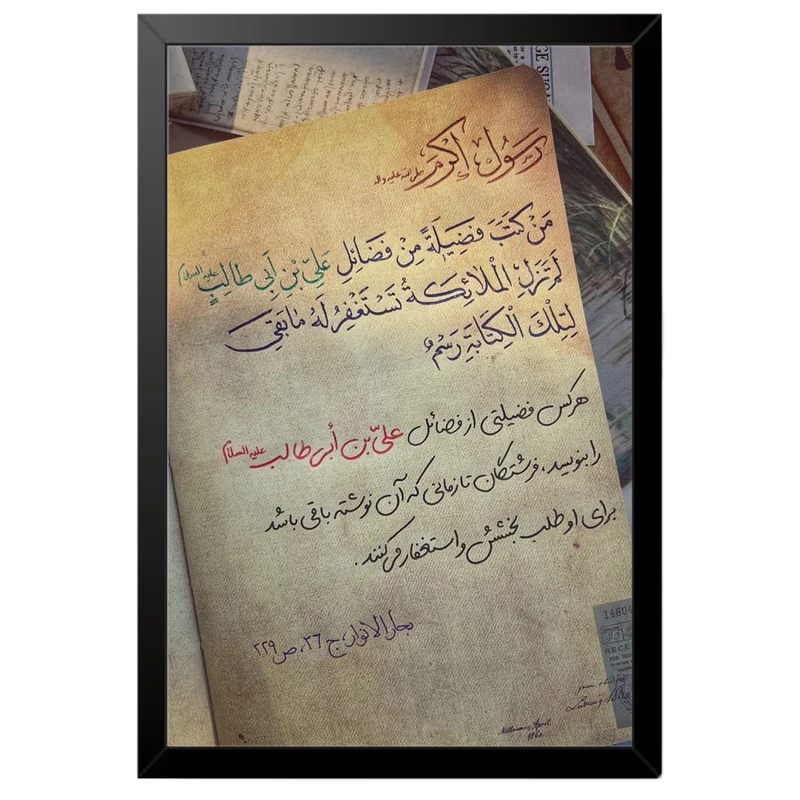 رسول اکرم صلی الله علیه واله
مَن كَتَبَ فَضِيلَةً مِنْ فَضَائِلِ عَلِيِّ بْنِ أَبِي طالِبٍ عليه السلام
لَمْ تَزَلِ الْمَلائِكَةُ تَسْتَغْفِرُ لَهُ مابَقِيَ
لِتِلْكَ الْكِتَابَةِ رَسْمٌ
هرکس فضیلتی از فضائل علیّ بن أبی طالب علیه السلام
را بنویسد، فرشتگان تا زمانی که آن نوشته باقی باشد
برای او طلب بخشش و استغفار می‌کنند.
بحار الانوار، ج ۲۶، ص ۲۲۹